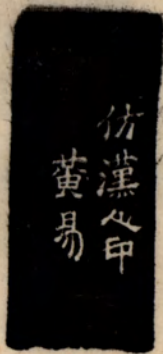 仿漢印
黄易